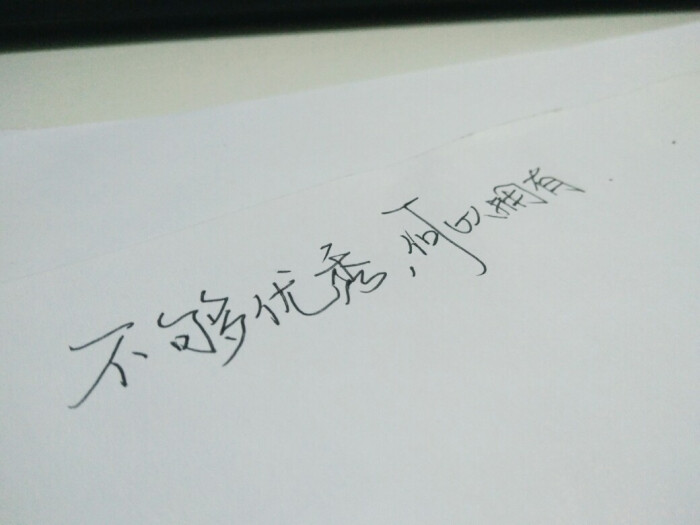 不够优秀,何以拥有